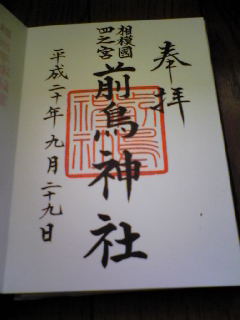 奉拝
相模國
四之宮
前鳥神社
平成二十年九月二十九日